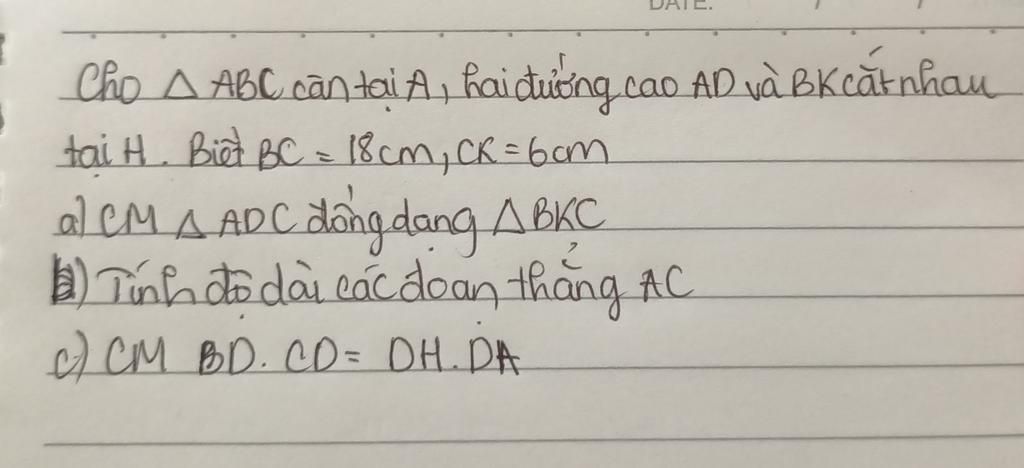 DATE: / /
Cho △ ABC cân tại A, hai đường cao AD và BK cắt nhau
tại H. Biết BC = 18cm, CK = 6cm
a) CM △ ADC đồng dạng △ BKC
b) Tính độ dài các đoạn thẳng AC
c) CM BD. CD = DH. DA